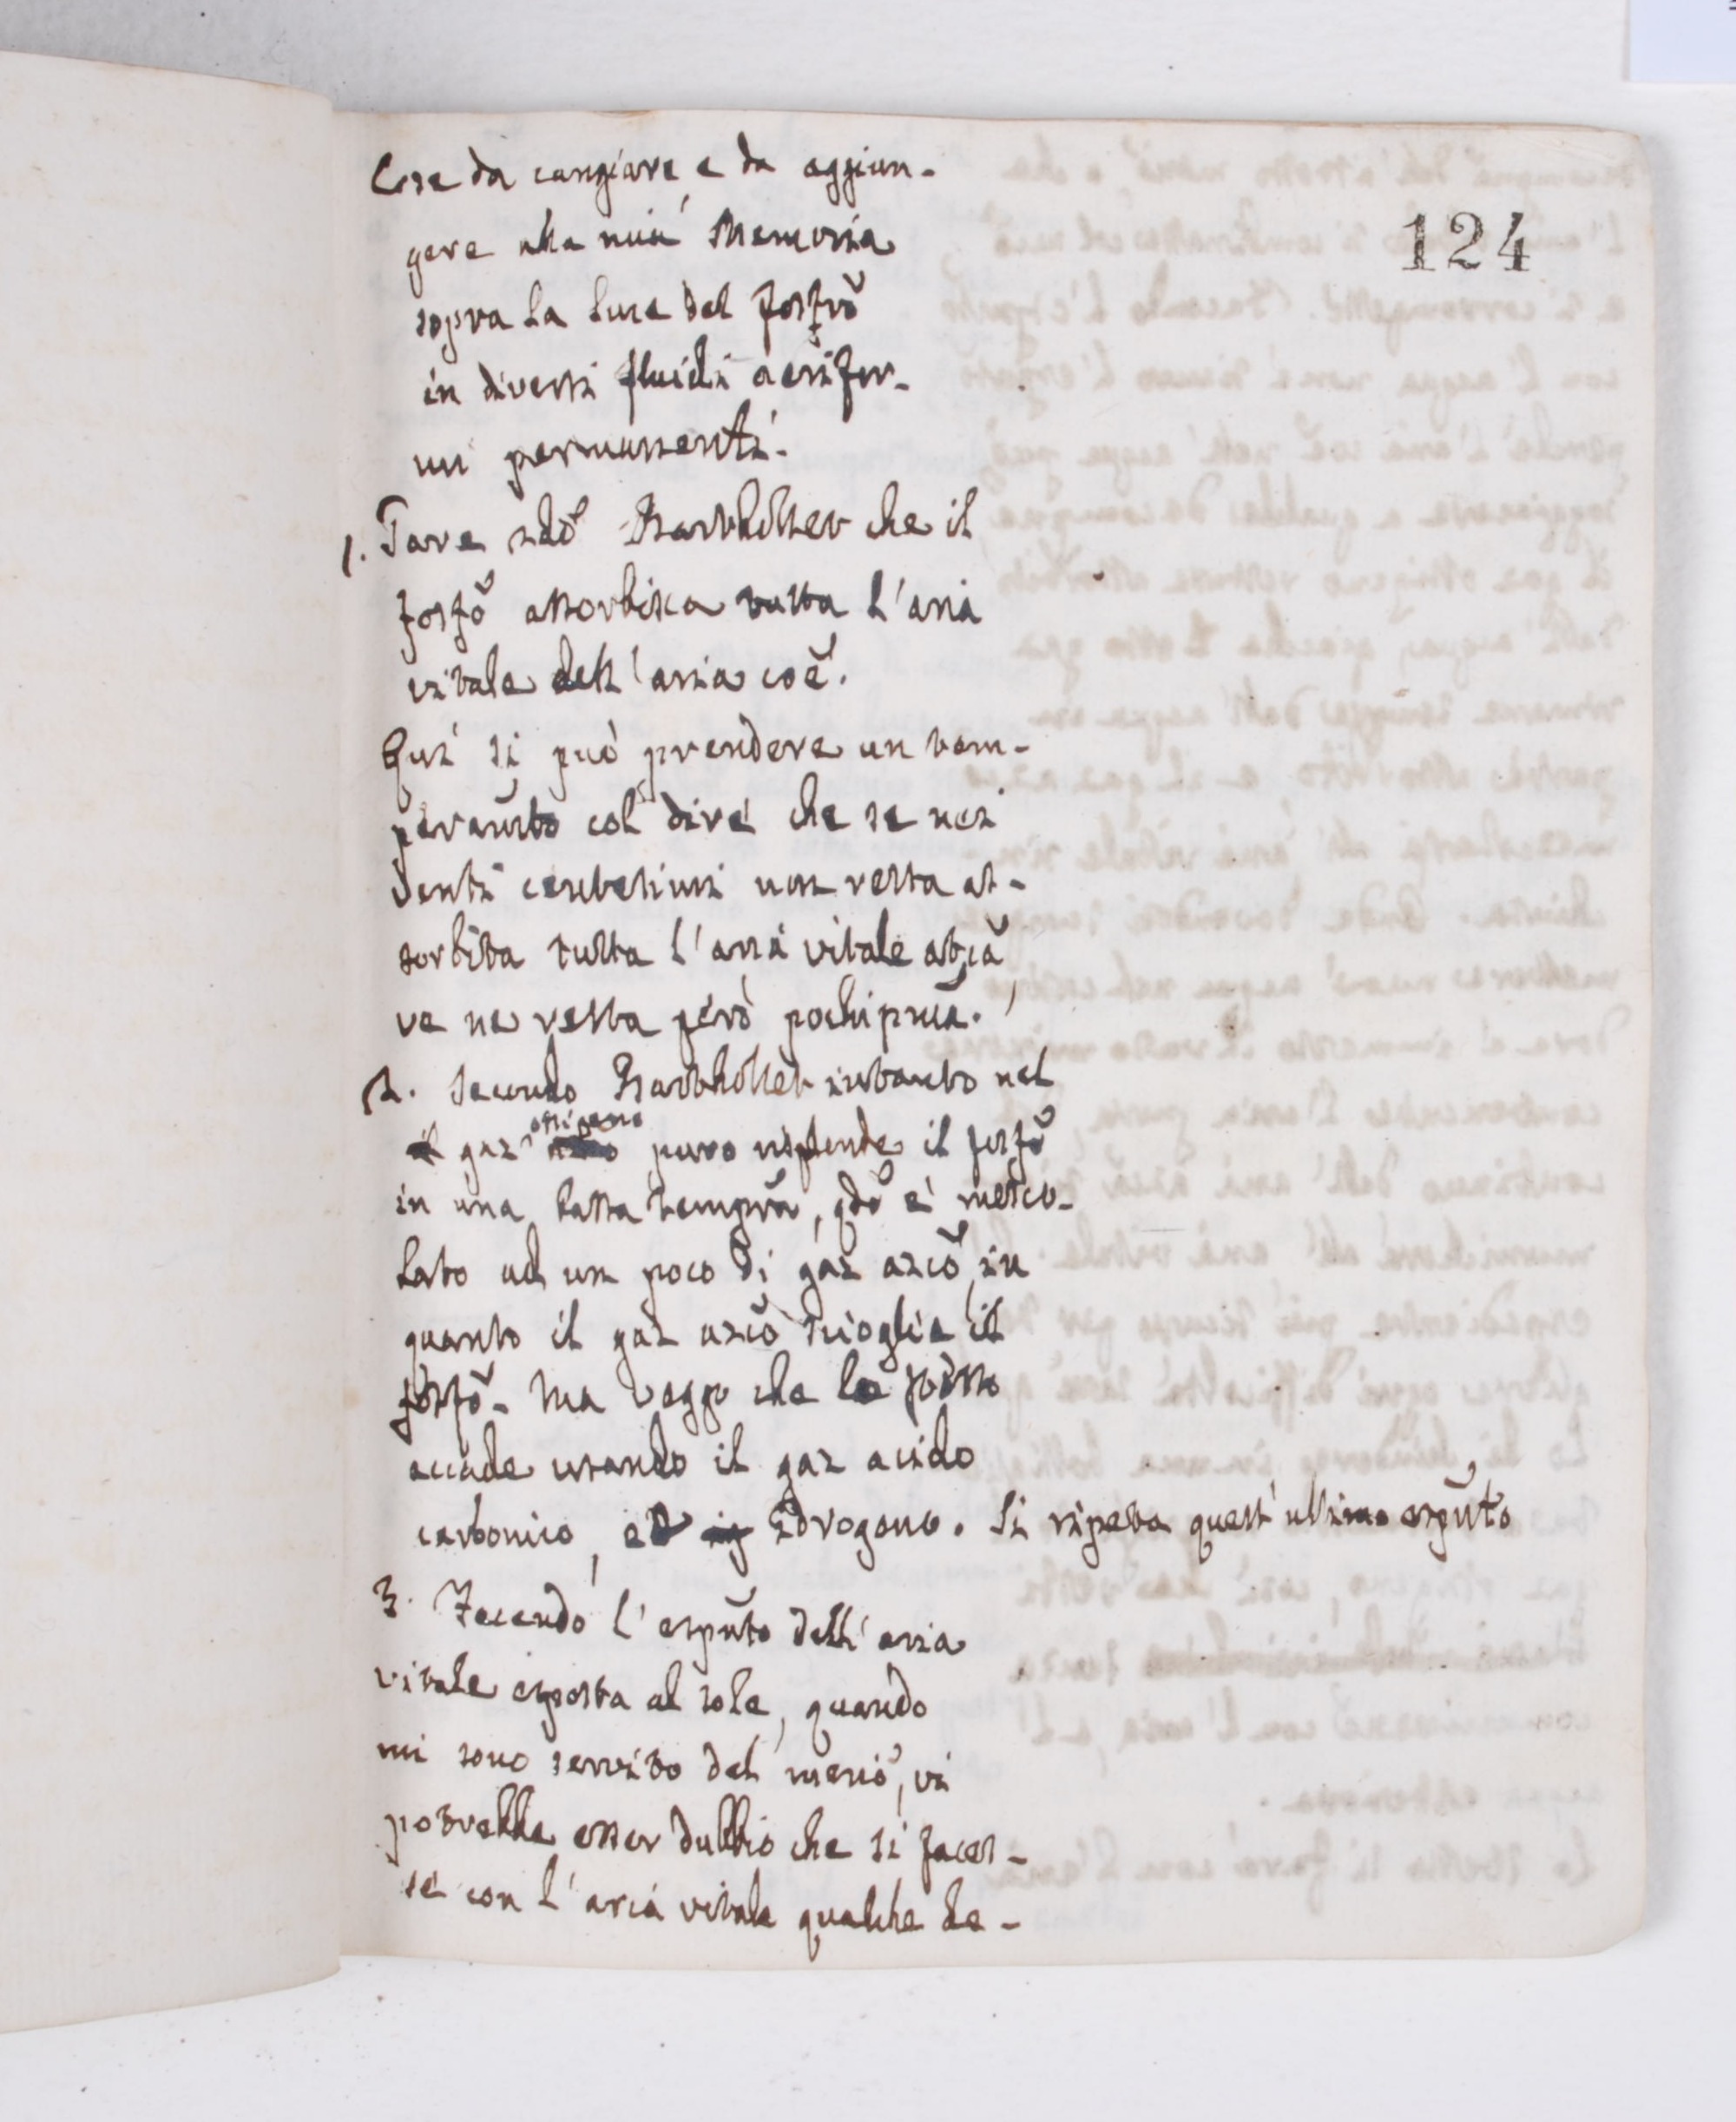 Cose da cangiare, e da aggiun-
124
gere alla mia Memoria
sopra la luce del fosfrõ
in diversi fluidi aerifor-
mi permanenti.
1. Pare sdõ Barthollet che il
fosfõ assorbisca tutta l'aria
vitale dell'aria coẽ.
Qui si può prendere un tem-
peramẽto col dire che se nei
venti centesimi non resta as-
sorbita tutta l'aria vitale atm̃ca,
ve ne resta però pochipma.
2. Secondo Barthollet intanto nel
ossigeno
il gaz puro risplende il fosfõ
in una bassa tempra, qdõ è mesco-
lato ad un poco di gaz azcõ, in
quanto il gaz azcõ scioglie il
fosfõ. Ma veggo che lo stesso
accade usando il gaz acido
carbonico, ed idrogeno. Si ripeta quest'ultimo esp̃nto
3. Facendo l'esp̃nto dell'aria
vitale esposta al sole, quando
mi sono servito del mercõ, vi
potrebbe esser dubbio che si faces-
se con l'aria vitale qualche de-